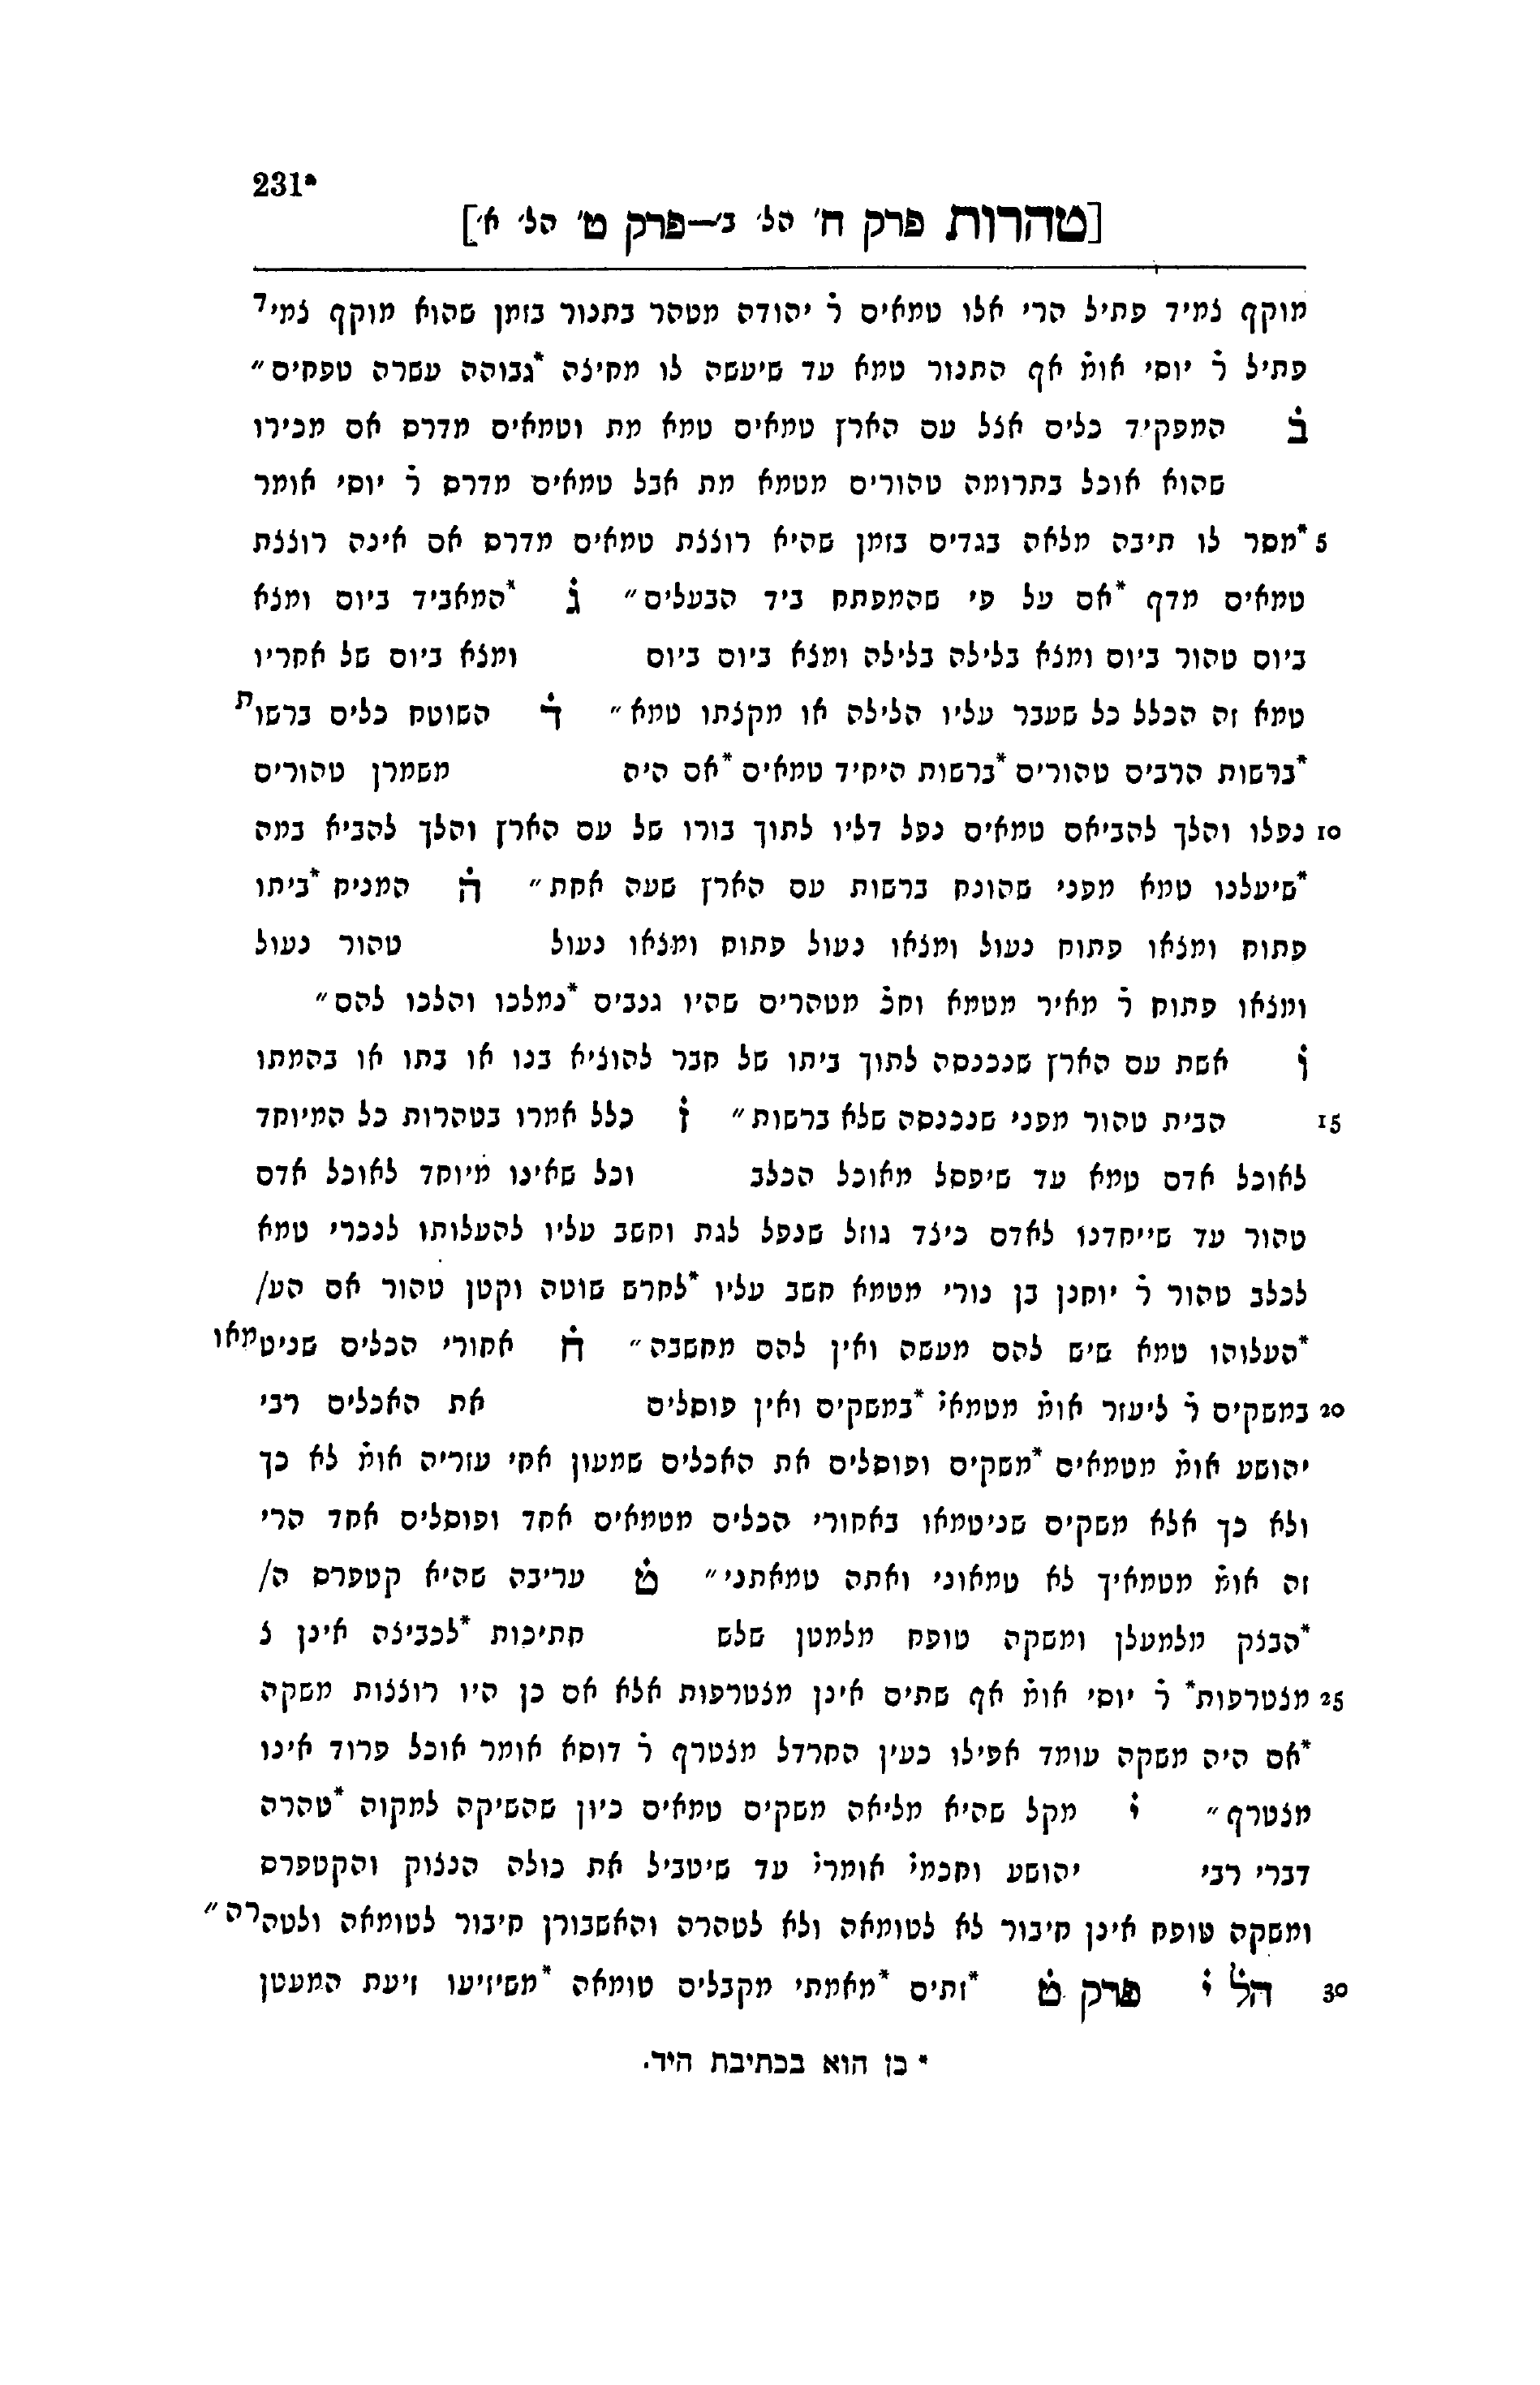 231a
[טהרות פרק ח׳ הל׳ ב׳—פרק ט׳ הל׳ א׳]
מוקף צמיד פתיל הרי אלו טמאים ר֗ יהודה מטהר בתנור בזמן שהוא מוקף צמיד
פתיל ר֗ יוסי אומ֗ אף התנור טמא עד שיעשה לו מחיצה *גבוהה עשרה טפחים״
ב֗ המפקיד כלים אצל עם הארץ טמאים טמא מת וטמאים מדרס אם מכירו
שהוא אוכל בתרומה טהורים מטמא מת אבל טמאים מדרס ר֗ יוסי אומר
5 *מסר לו תיבה מלאה בגדים בזמן שהיא רוצצת טמאים מדרס אם אינה רוצצת
טמאים מדף *אם על פי שהמפתח ביד הבעלים״ ג֗ *המאביד ביום ומצא
ביום טהור ביום ומצא בלילה בלילה ומצא ביום ביום ומצא ביום של אחריו
טמא זה הכלל כל שעבר עליו הלילה או מקצתו טמא״ ד֗ השוטח כלים ברשות
*ברשות הרבים טהורים *ברשות היחיד טמאים *אם היה משמרן טהורים
10 נפלו והלך להביאם טמאים נפל דליו לתוך בורו של עם הארץ והלך להביא במה
*שיעלנו טמא מפני שהונח ברשות עם הארץ שעה אחת״ ה֗ המניח *ביתו
פתוח ומצאו פתוח נעול ומצאו נעול פתוח ומצאו נעול טהור נעול
ומצאו פתוח ר֗ מאיר מטמא וחכ֗ מטהרים שהיו גנבים *נמלכו והלכו להם״
ו֗ אשת עם הארץ שנכנסה לתוך ביתו של חבר להוציא בנו או בתו או בהמתו
15 הבית טהור מפני שנכנסה שלא ברשות״ ז֗ כלל אמרו בטהרות כל המיוחד
לאוכל אדם טמא עד שיפסל מאוכל הכלב וכל שאינו מיוחד לאוכל אדם
טהור עד שייחדנו לאדם כיצד גוזל שנפל לגת וחשב עליו להעלותו לנכרי טמא
לכלב טהור ר֗ יוחנן בן נורי מטמא חשב עליו *לחרש שוטה וקטן טהור אם הע/
*העלוהו טמא שיש להם מעשה ואין להם מחשבה״ ח֗ אחורי הכלים שניטמאו
20 במשקים ר֗ ליעזר אומ֗ מטמאי֗ *במשקים ואין פוסלים את האכלים רבי
יהושע אומ֗ מטמאים *משקים ופוסלים את האכלים שמעון אחי עזריה אומ֗ לא כך
ולא כך אלא משקים שניטמאו באחורי הכלים מטמאים אחד ופוסלים אחד הרי
זה אומ֗ מטמאיך לא טמאוני ואתה טמאתני״ ט֗ עריבה שהיא קטפרס ה/
*הבצק מלמעלן ומשקה טופח מלמטן שלש חתיכות *לכביצה אינן צ
25 מצטרפות* ר֗ יוסי אומ֗ אף שתים אינן מצטרפות אלא אם כן היו רוצצות משקה
*אם היה משקה עומד אפילו כעין החרדל מצטרף ר֗ דוסא אומר אוכל פרוד אינו
מצטרף״ י֗ מקל שהיא מליאה משקים טמאים כיון שהשיקה למקוה *טהרה
דברי רבי יהושע וחכמי֗ אומרי֗ עד שיטביל את כולה הנצוק והקטפרס
ומשקה טופח אינן חיבור לא לטומאה ולא לטהרה והאשבורן חיבור לטומאה ולטהרה״
30 הל֗ י֗ פרק ט֗ *זתים *מאמתי מקבלים טומאה *משיזיעו זיעת המעטן
* כן הוא בכתיבת היד.